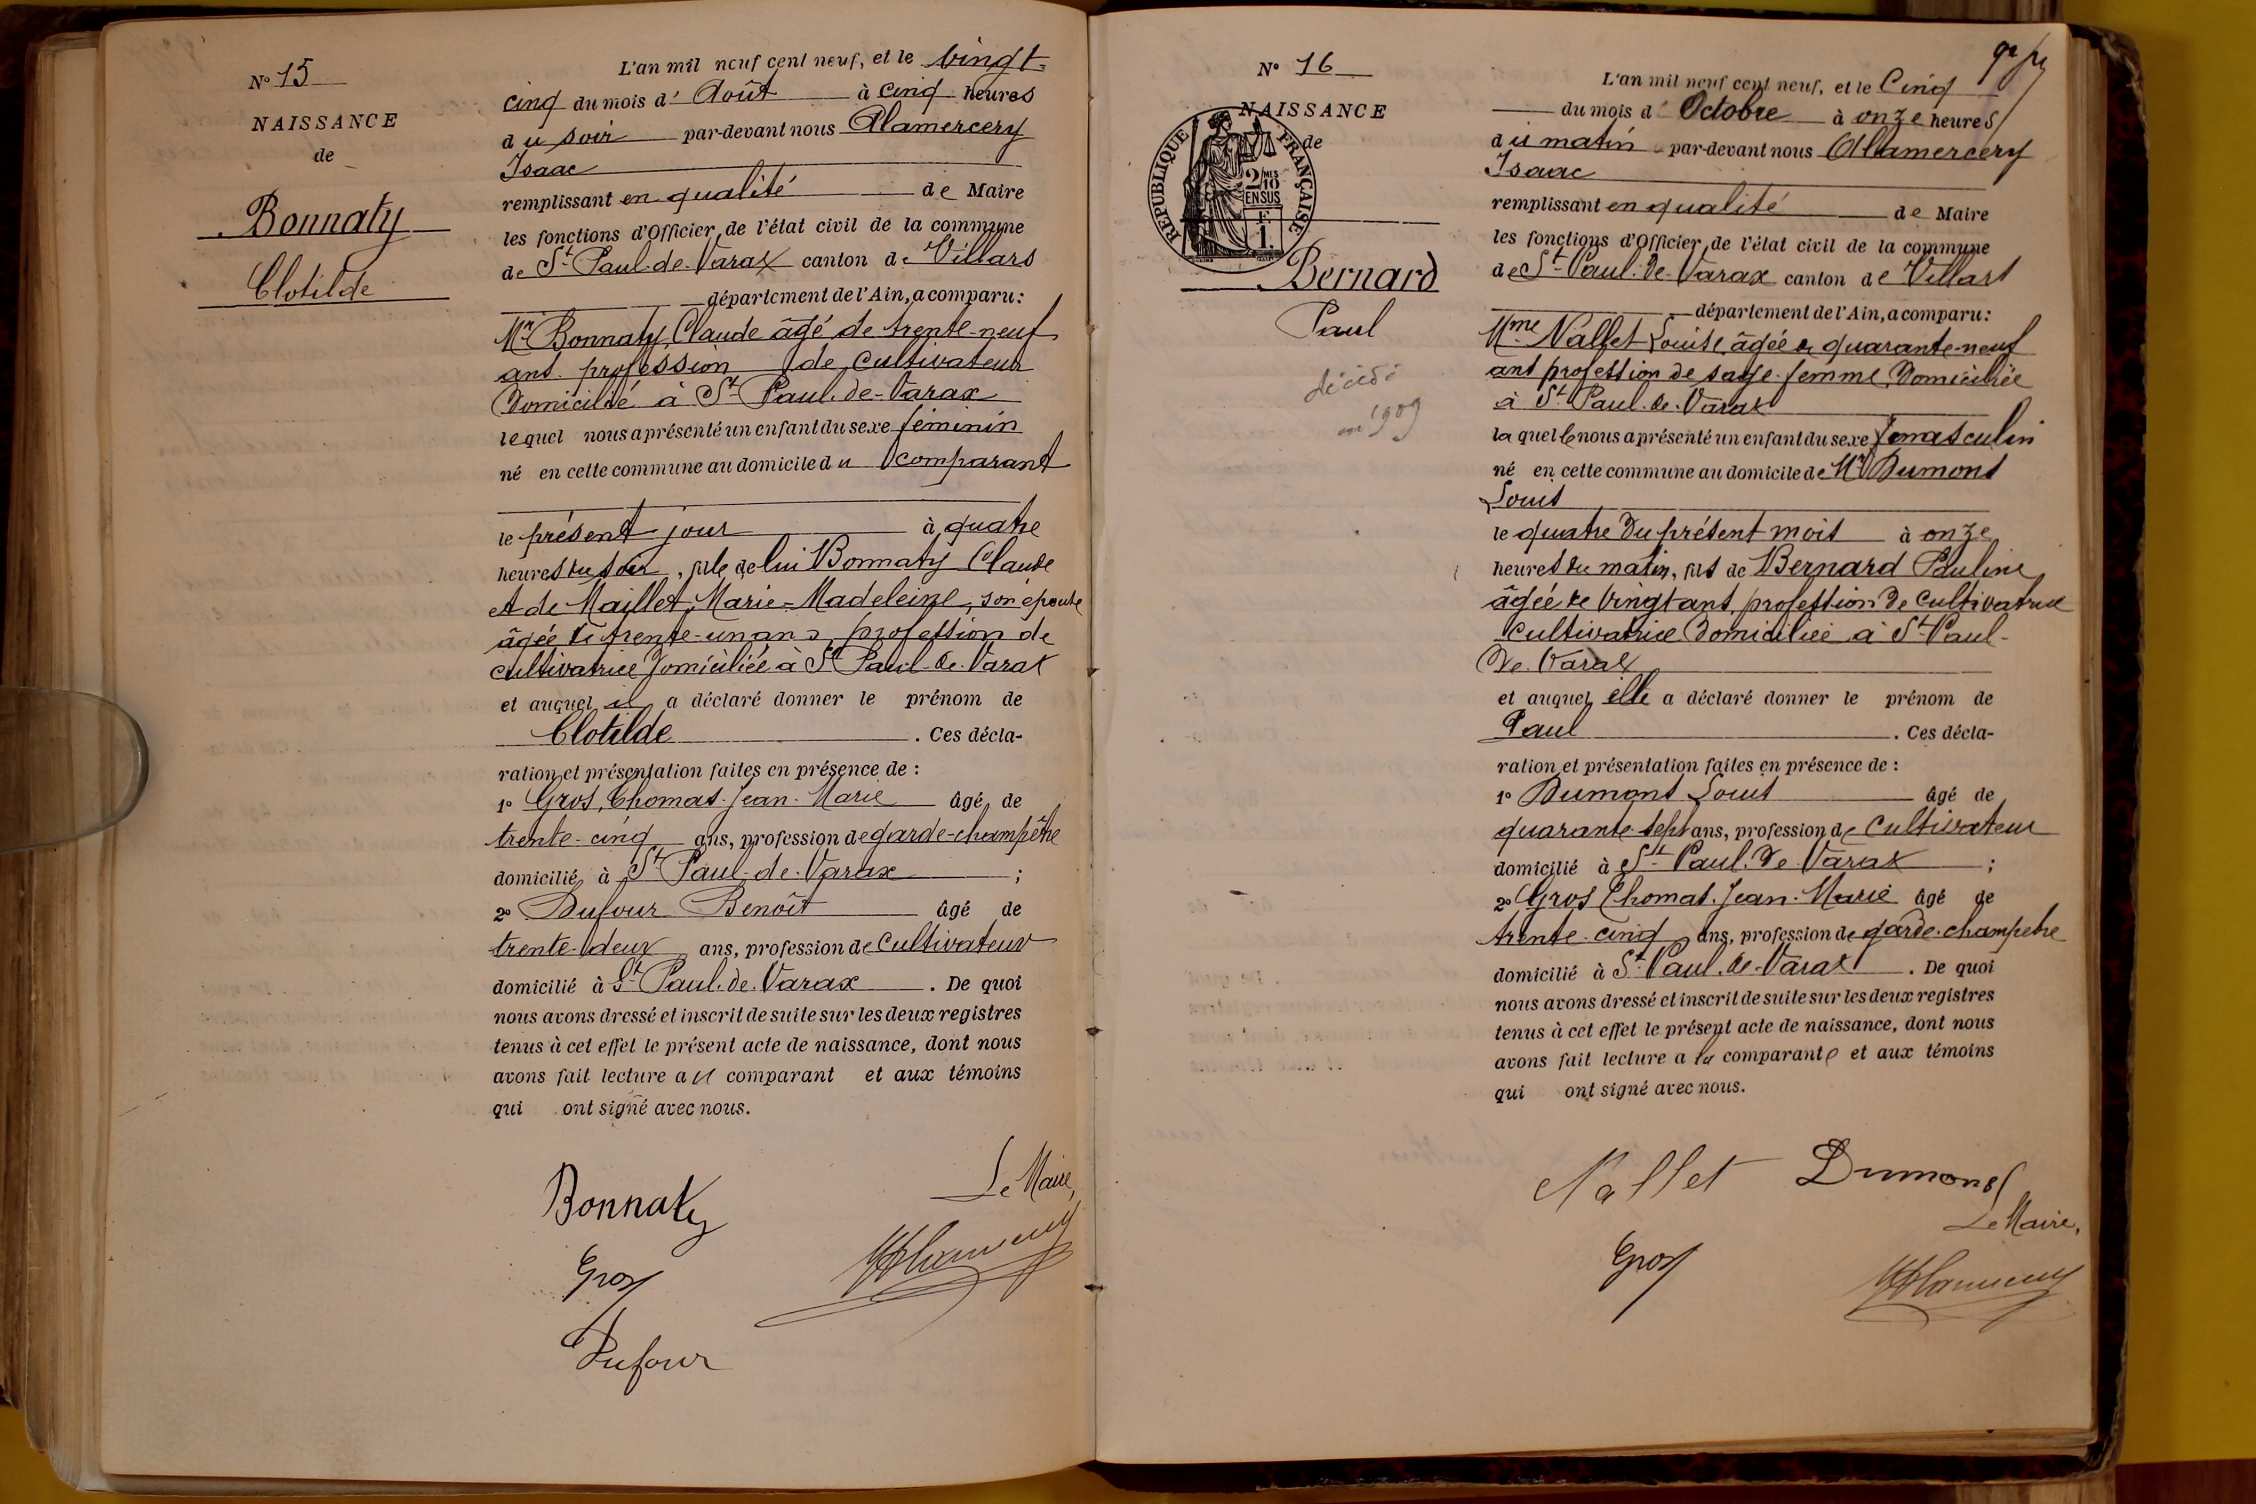 N° 15
NAISSANCE
de
Bonnaty
Clotilde
L'an mil neuf cent neuf, et le vingt-
cinq du mois d' Août à cinq heures
du soir par-devant nous Alamercery
Isaac
remplissant en qualité de Maire
les fonctions d'Officier de l'état civil de la commune
de St Paul-de-Varax canton de Villars
département de l'Ain, a comparu:
Mr Bonnaty Claude âgé de trente-neuf
ans profession de cultivateur
Domicilié à St Paul-de-Varax
lequel nous a présenté un enfant du sexe féminin
né en cette commune au domicile du comparant
le présent jour à quatre
heures du soir, fille de lui Bonnaty Claude
et de Maillet, Marie-Madeleine, son épouse
âgée de trente-un ans, profession de
cultivatrice Domiciliée à St Paul-de-Varax
et auquel il a déclaré donner le prénom de
Clotilde . Ces décla-
ration et présentation faites en présence de :
1° Gros, Thomas-Jean-Marie âgé de
trente-cinq ans, profession de garde-champêtre
domicilié à St Paul-de-Varax ;
2° Dufour Benoît âgé de
trente-deux ans, profession de cultivateur
domicilié à St Paul-de-Varax . De quoi
nous avons dressé et inscrit de suite sur les deux registres
tenus à cet effet le présent acte de naissance, dont nous
avons fait lecture au comparant et aux témoins
qui ont signé avec nous.
Le Maire,
Bonnaty
Gros
Dufour
N° 16
NAISSANCE
de
RÉPUBLIQUE FRANÇAISE
2/10 MES
EN SUS
Bernard
Paul
décédé
en 1909
L'an mil neuf cent neuf, et le Cinq
du mois d' Octobre à onze heures
du matin par-devant nous Alamercery
Isaac
remplissant en qualité de Maire
les fonctions d'Officier de l'état civil de la commune
de St Paul-de-Varax canton de Villars
département de l'Ain, a comparu:
Mme Nallet Louise âgée de quarante-neuf
ans profession de sage-femme Domiciliée
à St Paul-de-Varax
laquelle nous a présenté un enfant du sexe masculin
né en cette commune au domicile de Mr Dumont
Louis
le quatre du présent mois à onze
heures du matin, fils de Bernard Pauline
âgée de vingt ans, profession de cultivatrice
cultivatrice Domiciliée à St Paul-
de-Varax
et auquel elle a déclaré donner le prénom de
Paul . Ces décla-
ration et présentation faites en présence de :
1° Dumont Louis âgé de
quarante-sept ans, profession de cultivateur
domicilié à St Paul-de-Varax ;
2° Gros Thomas-Jean-Marie âgé de
trente-cinq ans, profession de garde-champetre
domicilié à St Paul-de-Varax . De quoi
nous avons dressé et inscrit de suite sur les deux registres
tenus à cet effet le présent acte de naissance, dont nous
avons fait lecture a la comparante et aux témoins
qui ont signé avec nous.
Nallet Dumont
Le Maire,
Gros